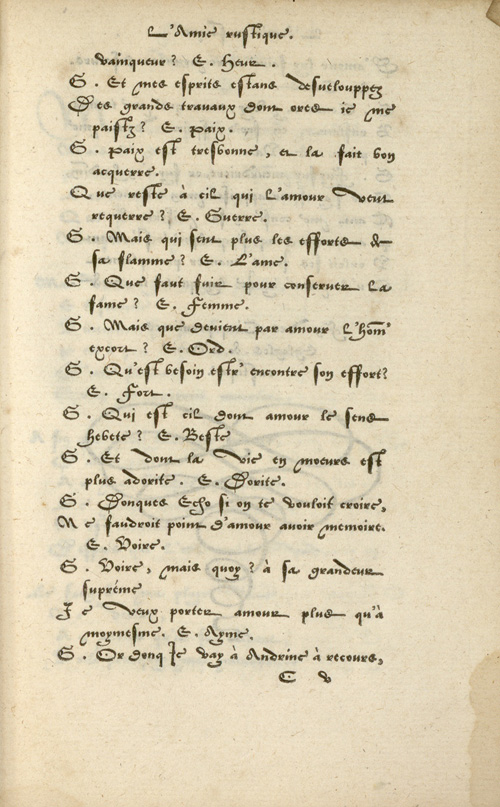 L'Amie rustique.
vainqueur? E. Heur.
G. Et mes esprits estans desuelouppez
Des grands travaux dont ores ie me
paistz? E. paix.
G. paix est tresbonne, et la fait bon
acquerre.
Que reste à cil qui l'amour veut
requerre? E. Guerre.
G. Mais qui sent plus les efforts &
sa flamme? E. L'ame.
G. Que faut fuir pour conseruer la
fame? E. Femme.
G. Mais que deuient par amour l'hom̃'
excort? E. Ord.
G. Qu'est besoin estr' encontre son effort?
E. Fort.
G. Qui est cil dont amour le sens
hebete? E. Beste
G. Et dont la vie en moeurs est
plus adorite. E. Dorite.
G. Donques Echo si on te vouloit croire,
Ne faudroit point d'amour auoir memoire.
E. Voire.
G. Voire, mais quoy? à sa grandeur
supréme
Je veux porter amour plus qu'à
moymesme. E. Ayme.
G. Or donq Je vay à Andrine à recours,
C v